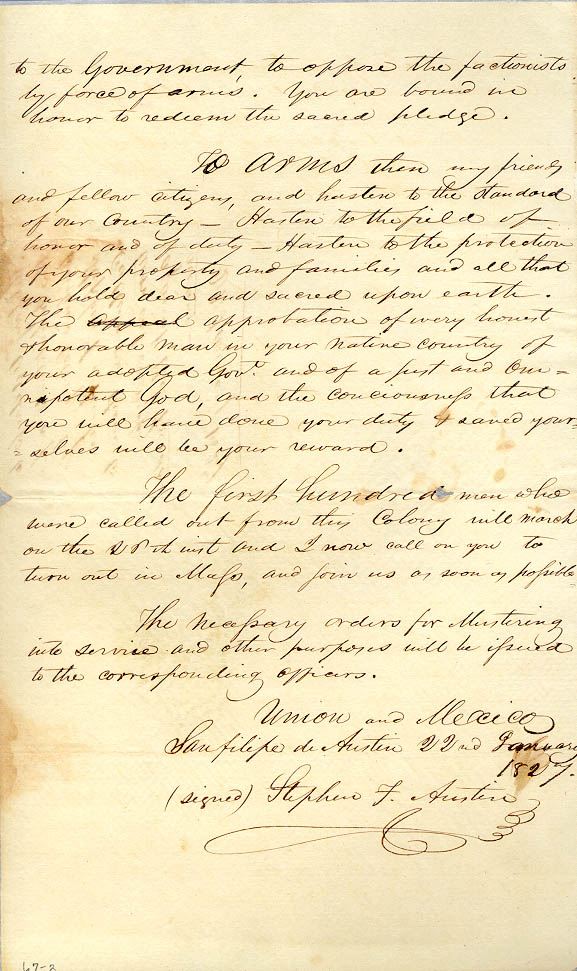 to the Government, to oppose the factionists
by force of arms. You are bound in
honor to redeem the sacred pledge.
To Arms then my friends
and fellow citizens, and hasten to the standard
of our Country – Hasten to the field of
honor and of duty – Hasten to the protection
of your property and families and all that
you hold dear and sacred upon earth.
The appeal approbation of every honest
& honorable man in your native country of
your adopted Govt. and of a just and om=
nipotent God, and the conciousness that
you will have done your duty & saved your=
=selves will be your reward.
The first hundred men who
were called out from this Colony will march
on the 26th inst and I now call on you to
turn out in Mass, and join us as soon as possible
The necessary orders for Mustering
into service and other purposes will be issued
to the corresponding officers.
Union and Mexico
San filipe de Austin 22nd January
1827.
(signed) Stephen F. Austin
67-2